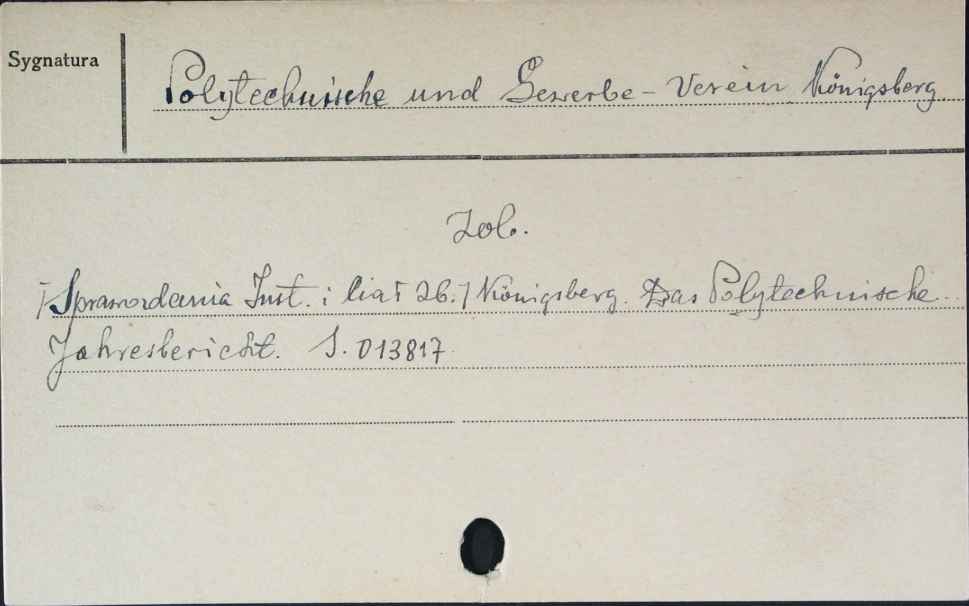 Sygnatura
Polytechnische und Gewerbe-Verein Königsberg
Zob.
[Sprawozdania Inst. i
Zb.] Königsberg. Das Polytechnische
Jahresbericht. S. 013817